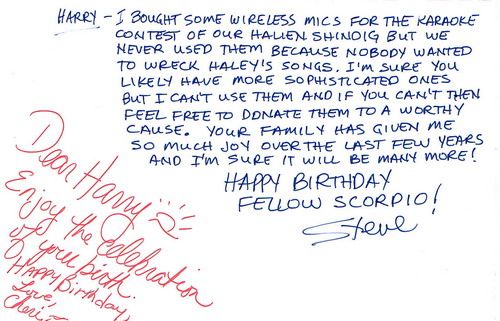 HARRY - I BOUGHT SOME WIRELESS MICS FOR THE KARAOKE
CONTEST OF OUR HALLEN SHINDIG BUT WE
NEVER USED THEM BECAUSE NOBODY WANTED
TO WRECK HALEY'S SONGS. I'M SURE YOU
LIKELY HAVE MORE SOPHISTICATED ONES
BUT I CAN'T USE THEM AND IF YOU CAN'T THEN
FEEL FREE TO DONATE THEM TO A WORTHY
CAUSE. YOUR FAMILY HAS GIVEN ME
SO MUCH JOY OVER THE LAST FEW YEARS
AND I'M SURE IT WILL BE MANY MORE!
HAPPY BIRTHDAY
FELLOW SCORPIO!
Steve
Dear Harry
Enjoy the celebration
of your birth.
Happy Birthday,
Love,
Cheri